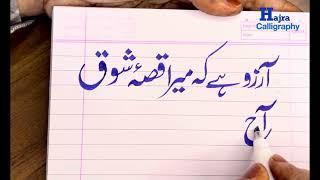 Hajra
Calligraphy
آرزو ہے کہ میرا قصۂ شوق
آج